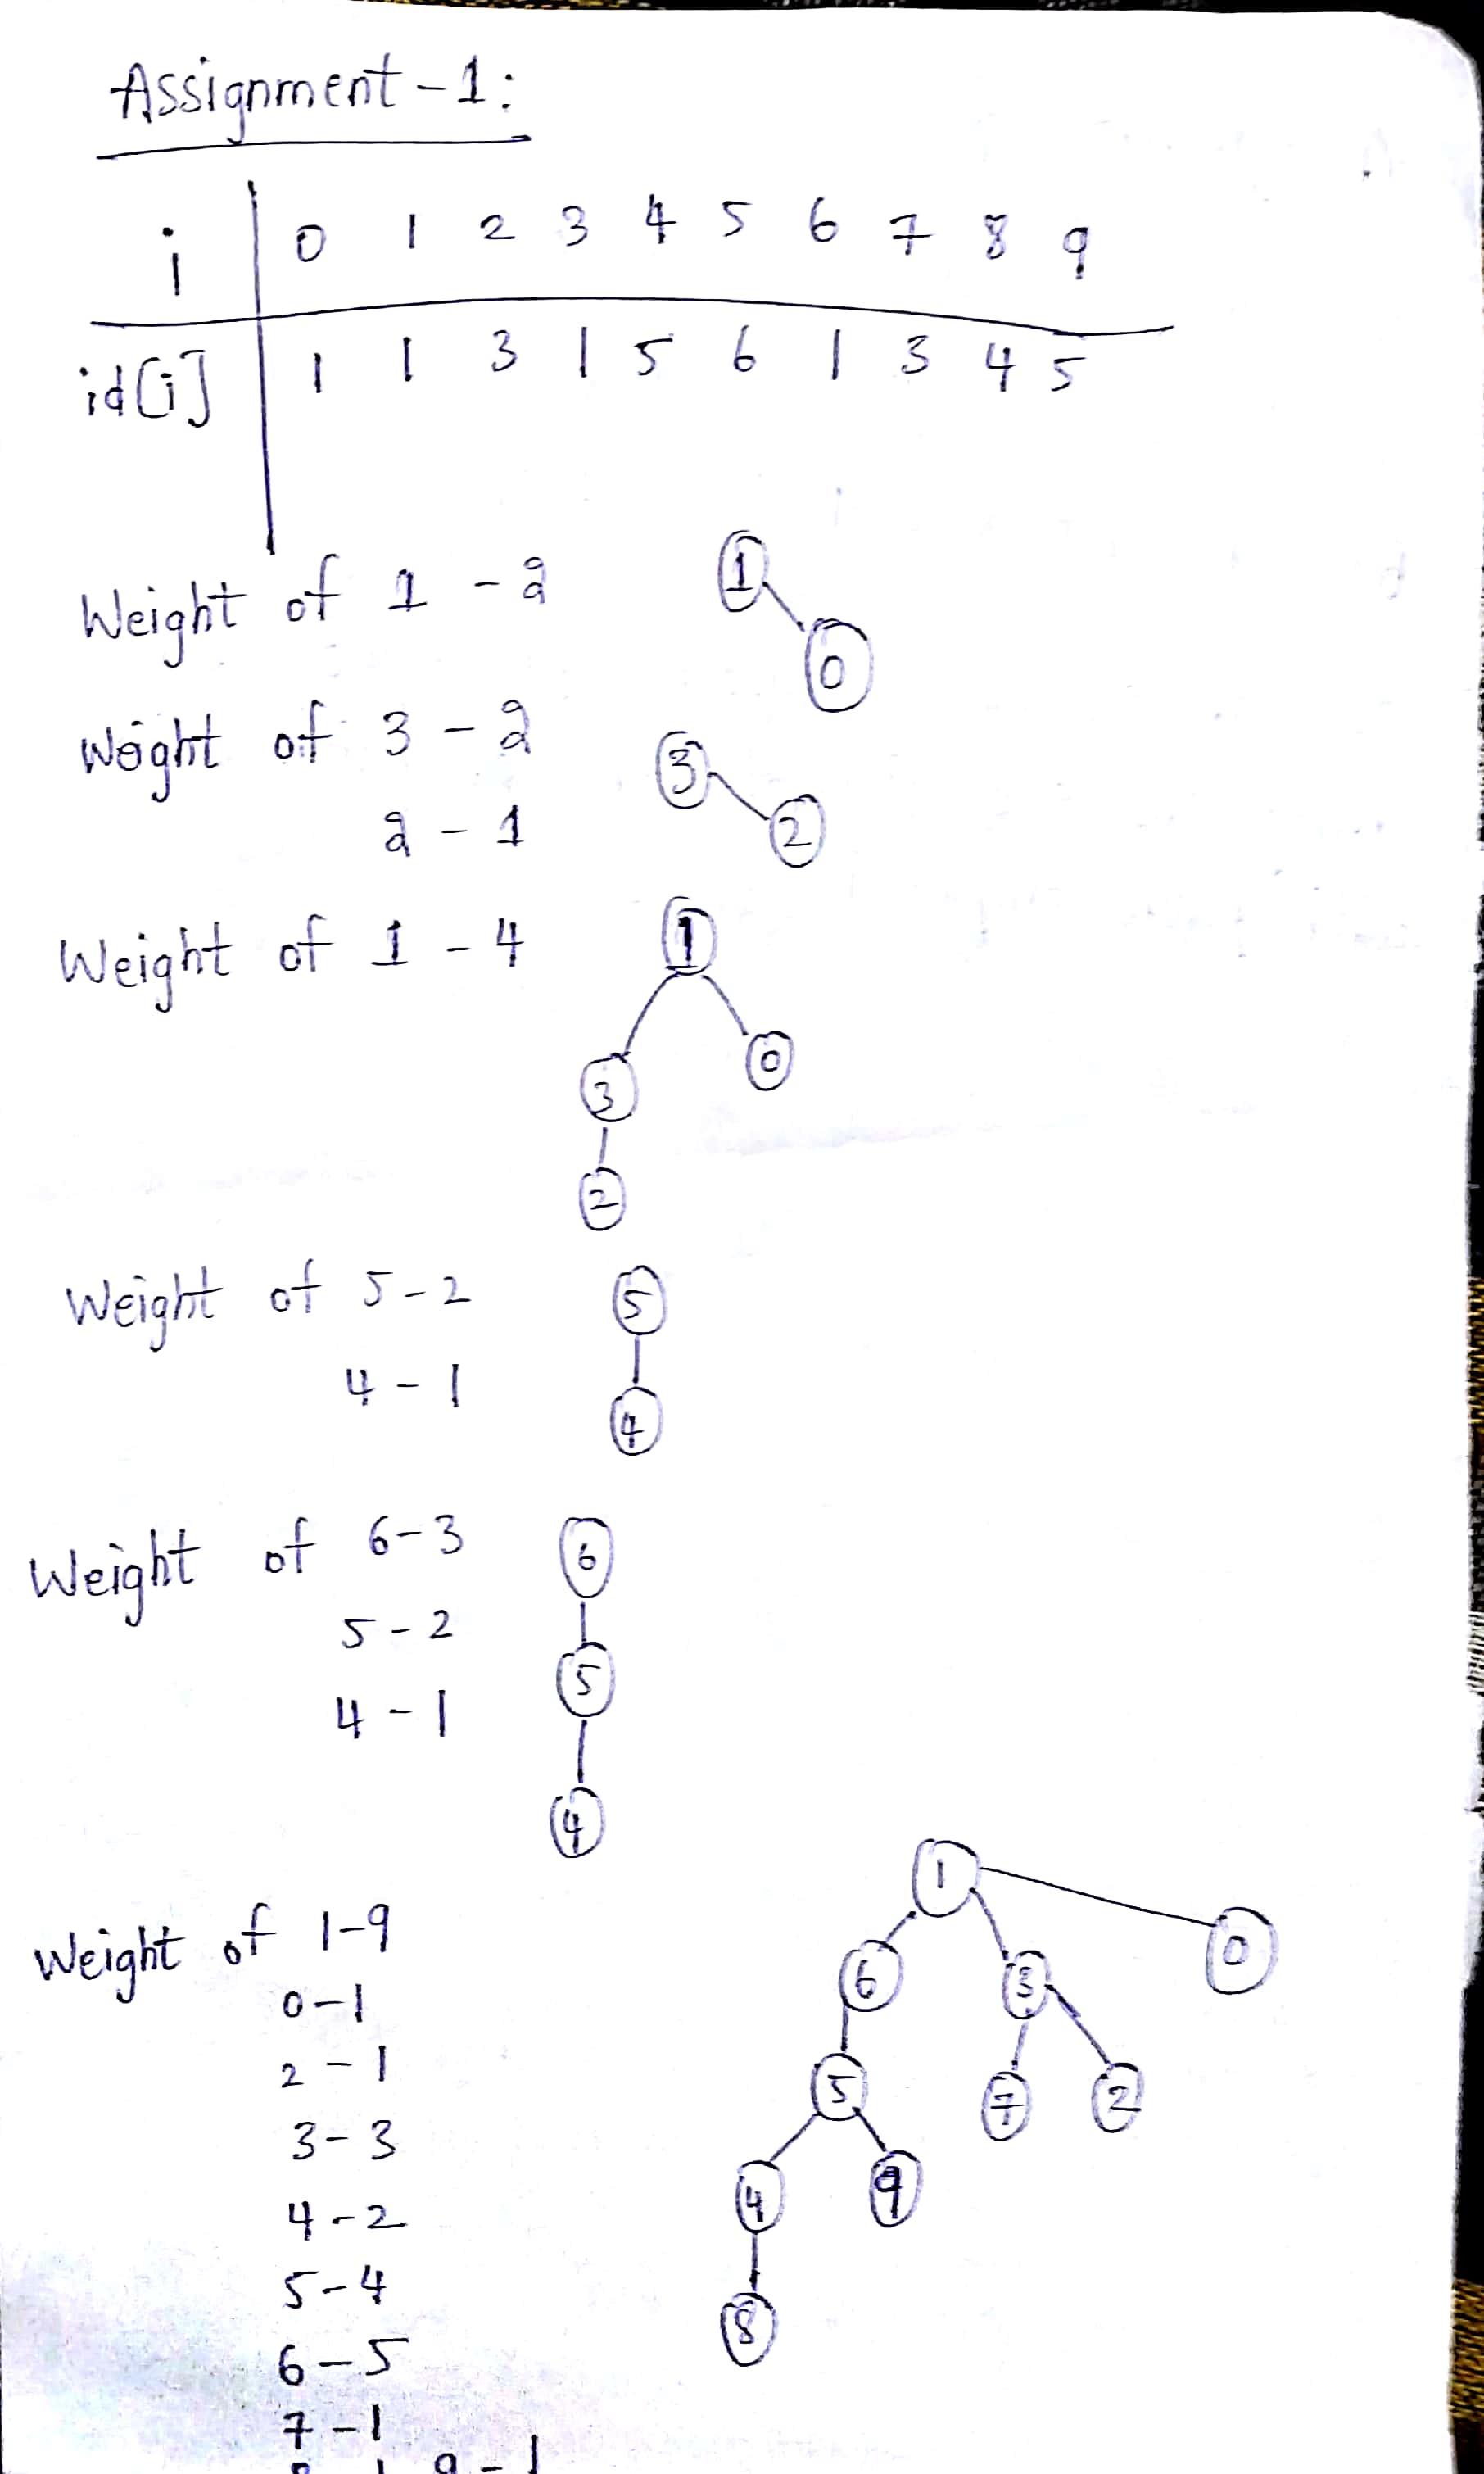 Assignment - 1:
i 0 1 2 3 4 5 6 7 8 9
id[i] 1 1 3 1 5 6 1 3 4 5
Weight of 1 - 2
1
0
Weight of 3 - 2
2 - 1
3
2
Weight of 1 - 4
1
3 0
2
Weight of 5 - 2
4 - 1
5
4
Weight of 6 - 3
5 - 2
4 - 1
6
5
4
Weight of 1 - 9
0 - 1
2 - 1
3 - 3
4 - 2
5 - 4
6 - 5
7 - 1
9 - 1
1
6 3 0
5 7 2
4 9
8